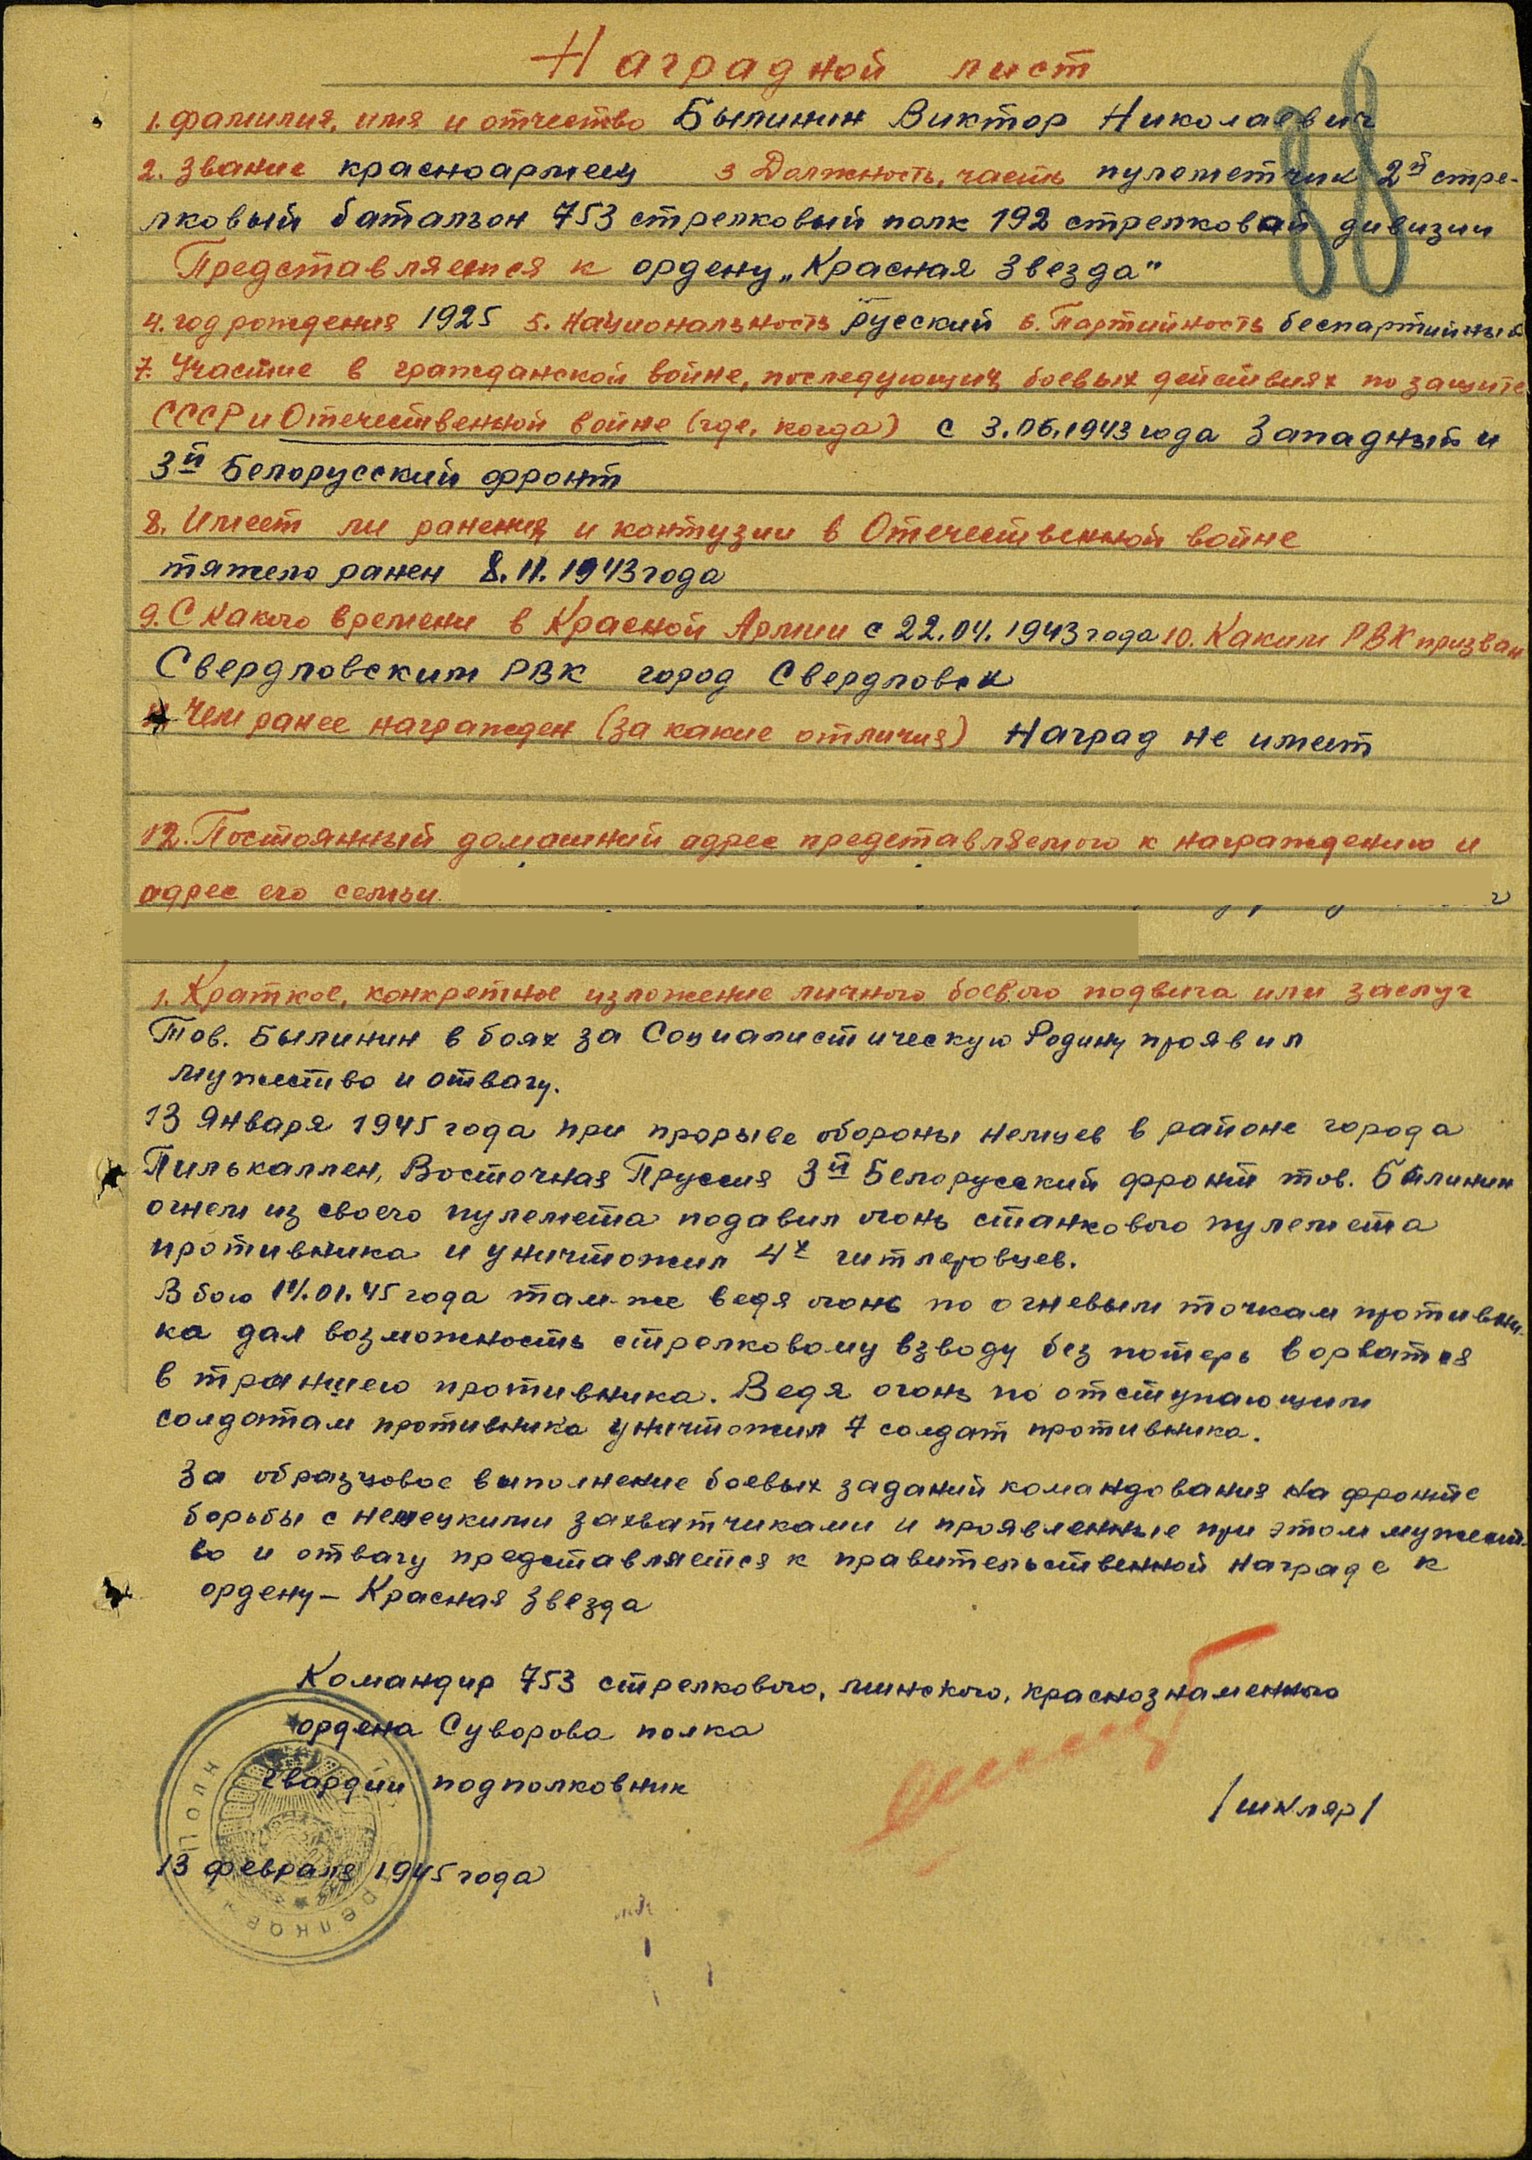 Наградной лист
88
1. фамилия, имя и отчество Былинин Виктор Николаевич
2. Звание красноармеец 3 Должность, часть пулеметчик 2й стре-
лковый батальон 753 стрелковый полк 192 стрелковой дивизии
Представляется к ордену „Красная Звезда"
4. год рождения 1925 5. Национальность русский 6. Партийность беспартийный
7. Участие в гражданской войне, последующих боевых действиях по защите
СССР и Отечественной войне (где, когда) с 3.06.1943 года Западный и
3й Белорусский фронт
8. Имеет ли ранения и контузии в Отечественной войне
тяжело ранен 8.11.1943 года
9. С какого времени в Красной Армии с 22.04.1943 года 10. Каким РВК призван
Свердловским РВК город Свердловск
11 Чем ранее награжден (за какие отличия) Наград не имеет
12. Постоянный домашний адрес представляемого к награждению и
адрес его семьи
1. Краткое, конкретное изложение личного боевого подвига или заслуг
Тов. Былинин в боях за Социалистическую Родину проявил
мужество и отвагу.
13 января 1945 года при прорыве обороны немцев в районе города
Пилькаллен, Восточная Пруссия 3й Белорусский фронт тов. Былинин
огнем из своего пулемета подавил огонь станкового пулемета
противника и уничтожил 4х гитлеровцев.
В бою 14.01.45 года там-же ведя огонь по огневым точкам противни-
ка дал возможность стрелковому взводу без потерь ворватся
в траншею противника. Ведя огонь по отступающим
солдатам противника уничтожил 7 солдат противника.
За образцовое выполнение боевых заданий командования на фронте
борьбы с немецкими захватчиками и проявленные при этом мужест-
во и отвагу представляется к правительственной награде к
ордену – Красная Звезда
Командир 753 стрелкового, минского, краснознаменного
ордена Суворова полка
Гвардии подполковник
/шкляр/
13 февраля 1945 года